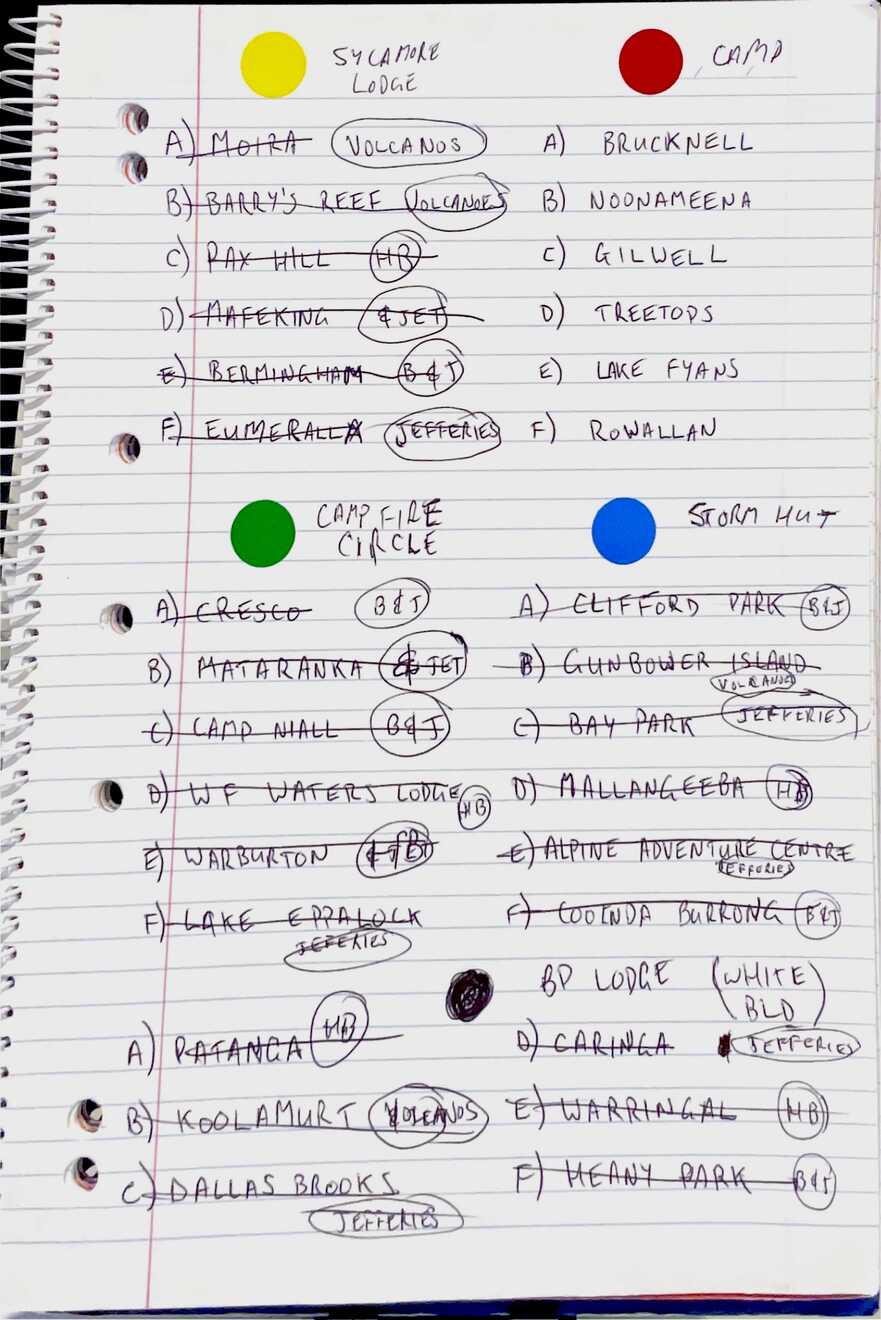 SYCAMORE
LODGE
A) MOIRA VOLCANOS
B) BARRY'S REEF VOLCANOES
C) PAX HILL HB
D) MAFEKING & JET
E) BERMINGHAM B & J
F) EUMERALLA JEFFERIES
CAMP
A) BRUCKNELL
B) NOONAMEENA
C) GILWELL
D) TREETOPS
E) LAKE FYANS
F) ROWALLAN
CAMP FIRE
CIRCLE
A) CRESCO B & J
B) MATARANKA & JET
C) CAMP NIALL B & J
D) WF WATERS LODGE
HB
E) WARBURTON
F) LAKE EPPALOCK
JEFERIES
STORM HUT
A) CLIFFORD PARK B&J
B) GUNBOWER ISLAND
VOLCANOS
C) BAY PARK JEFFERIES
D) MALLANGEEBA HB
E) ALPINE ADVENTURE CENTRE
JEFFORIES
F) COOINDA BURRONG B&J
BP LODGE (WHITE
BLD)
A) PATANGA HB
B) KOOLAMURT VOLCANOS
C) DALLAS BROOKS
JEFFERIES
D) CARINGA JEFFERIES
E) WARRINGAL HB
F) HEANY PARK B&J